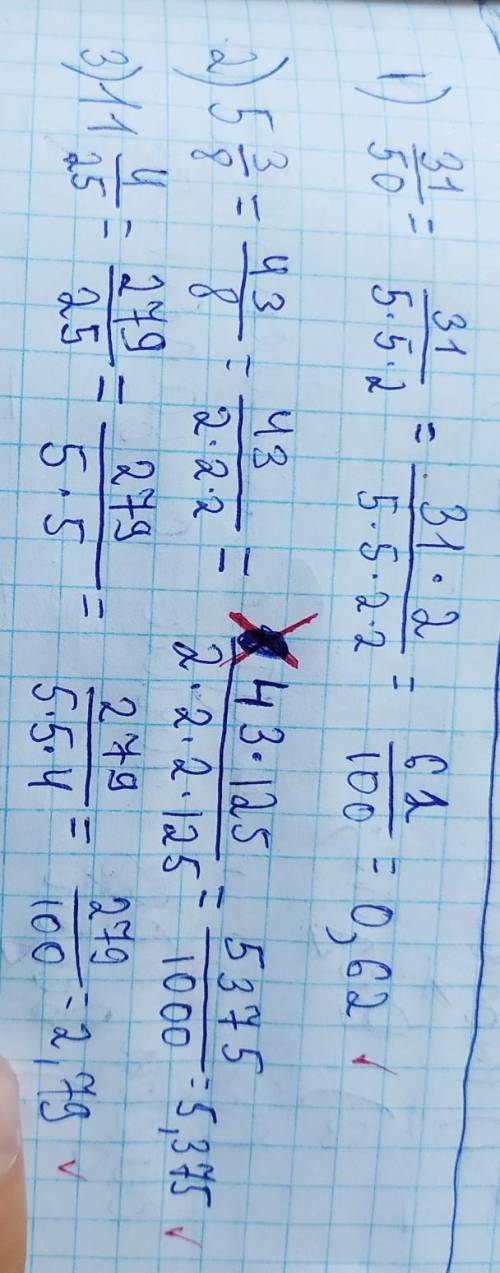 1) 31/50 = 31/5·5·2 = 31·2/5·5·2·2 = 62/100 = 0,62 ✓
2) 5 3/8 = 43/8 = 43/2·2·2 = 43·125/2·2·2·125 = 5375/1000 = 5,375 ✓
3) 11 4/25 = 279/25 = 279/5·5 = 279/5·5·4 = 279/100 = 2,79 ✓